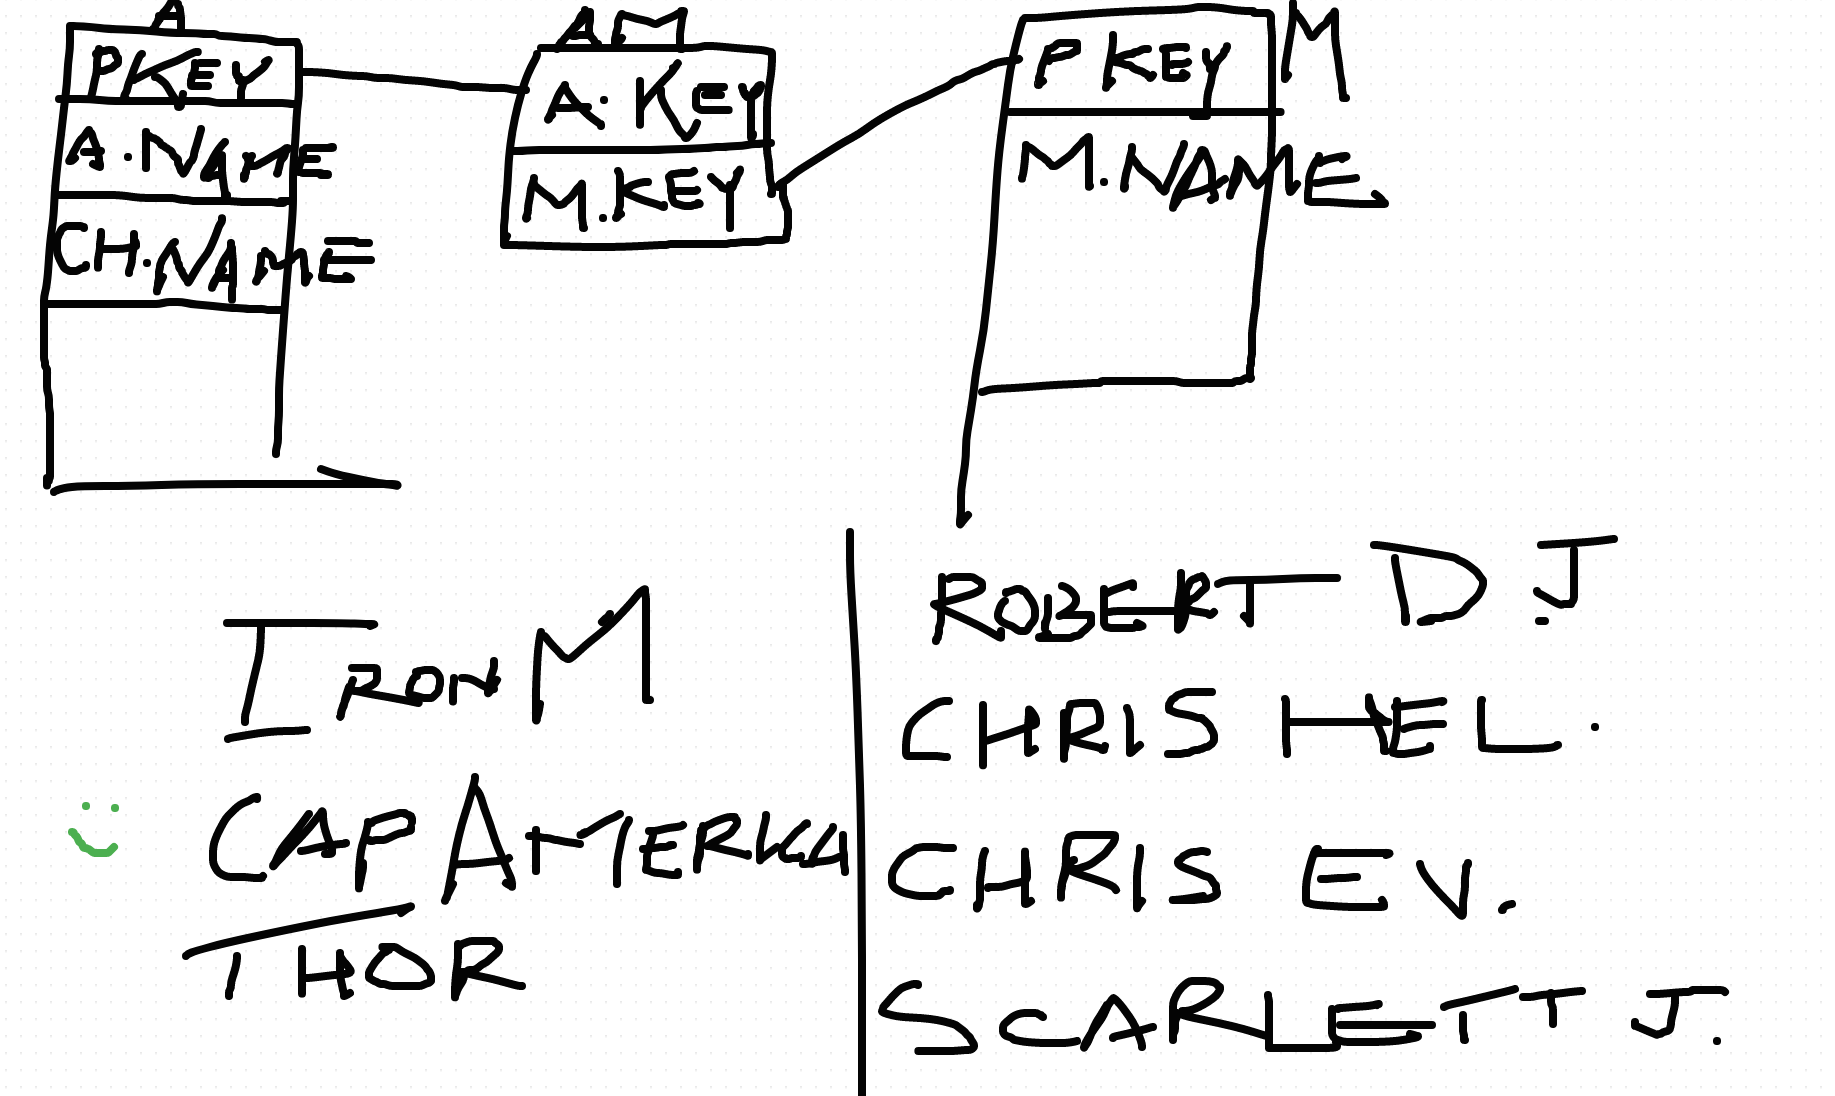 A
PKEY
A.NAME
CH.NAME
AM
A.KEY
M.KEY
M
P KEY
M.NAME
IRON M
CAP AMERICA
THOR
ROBERT D J.
CHRIS HEL.
CHRIS EV.
SCARLETT J.